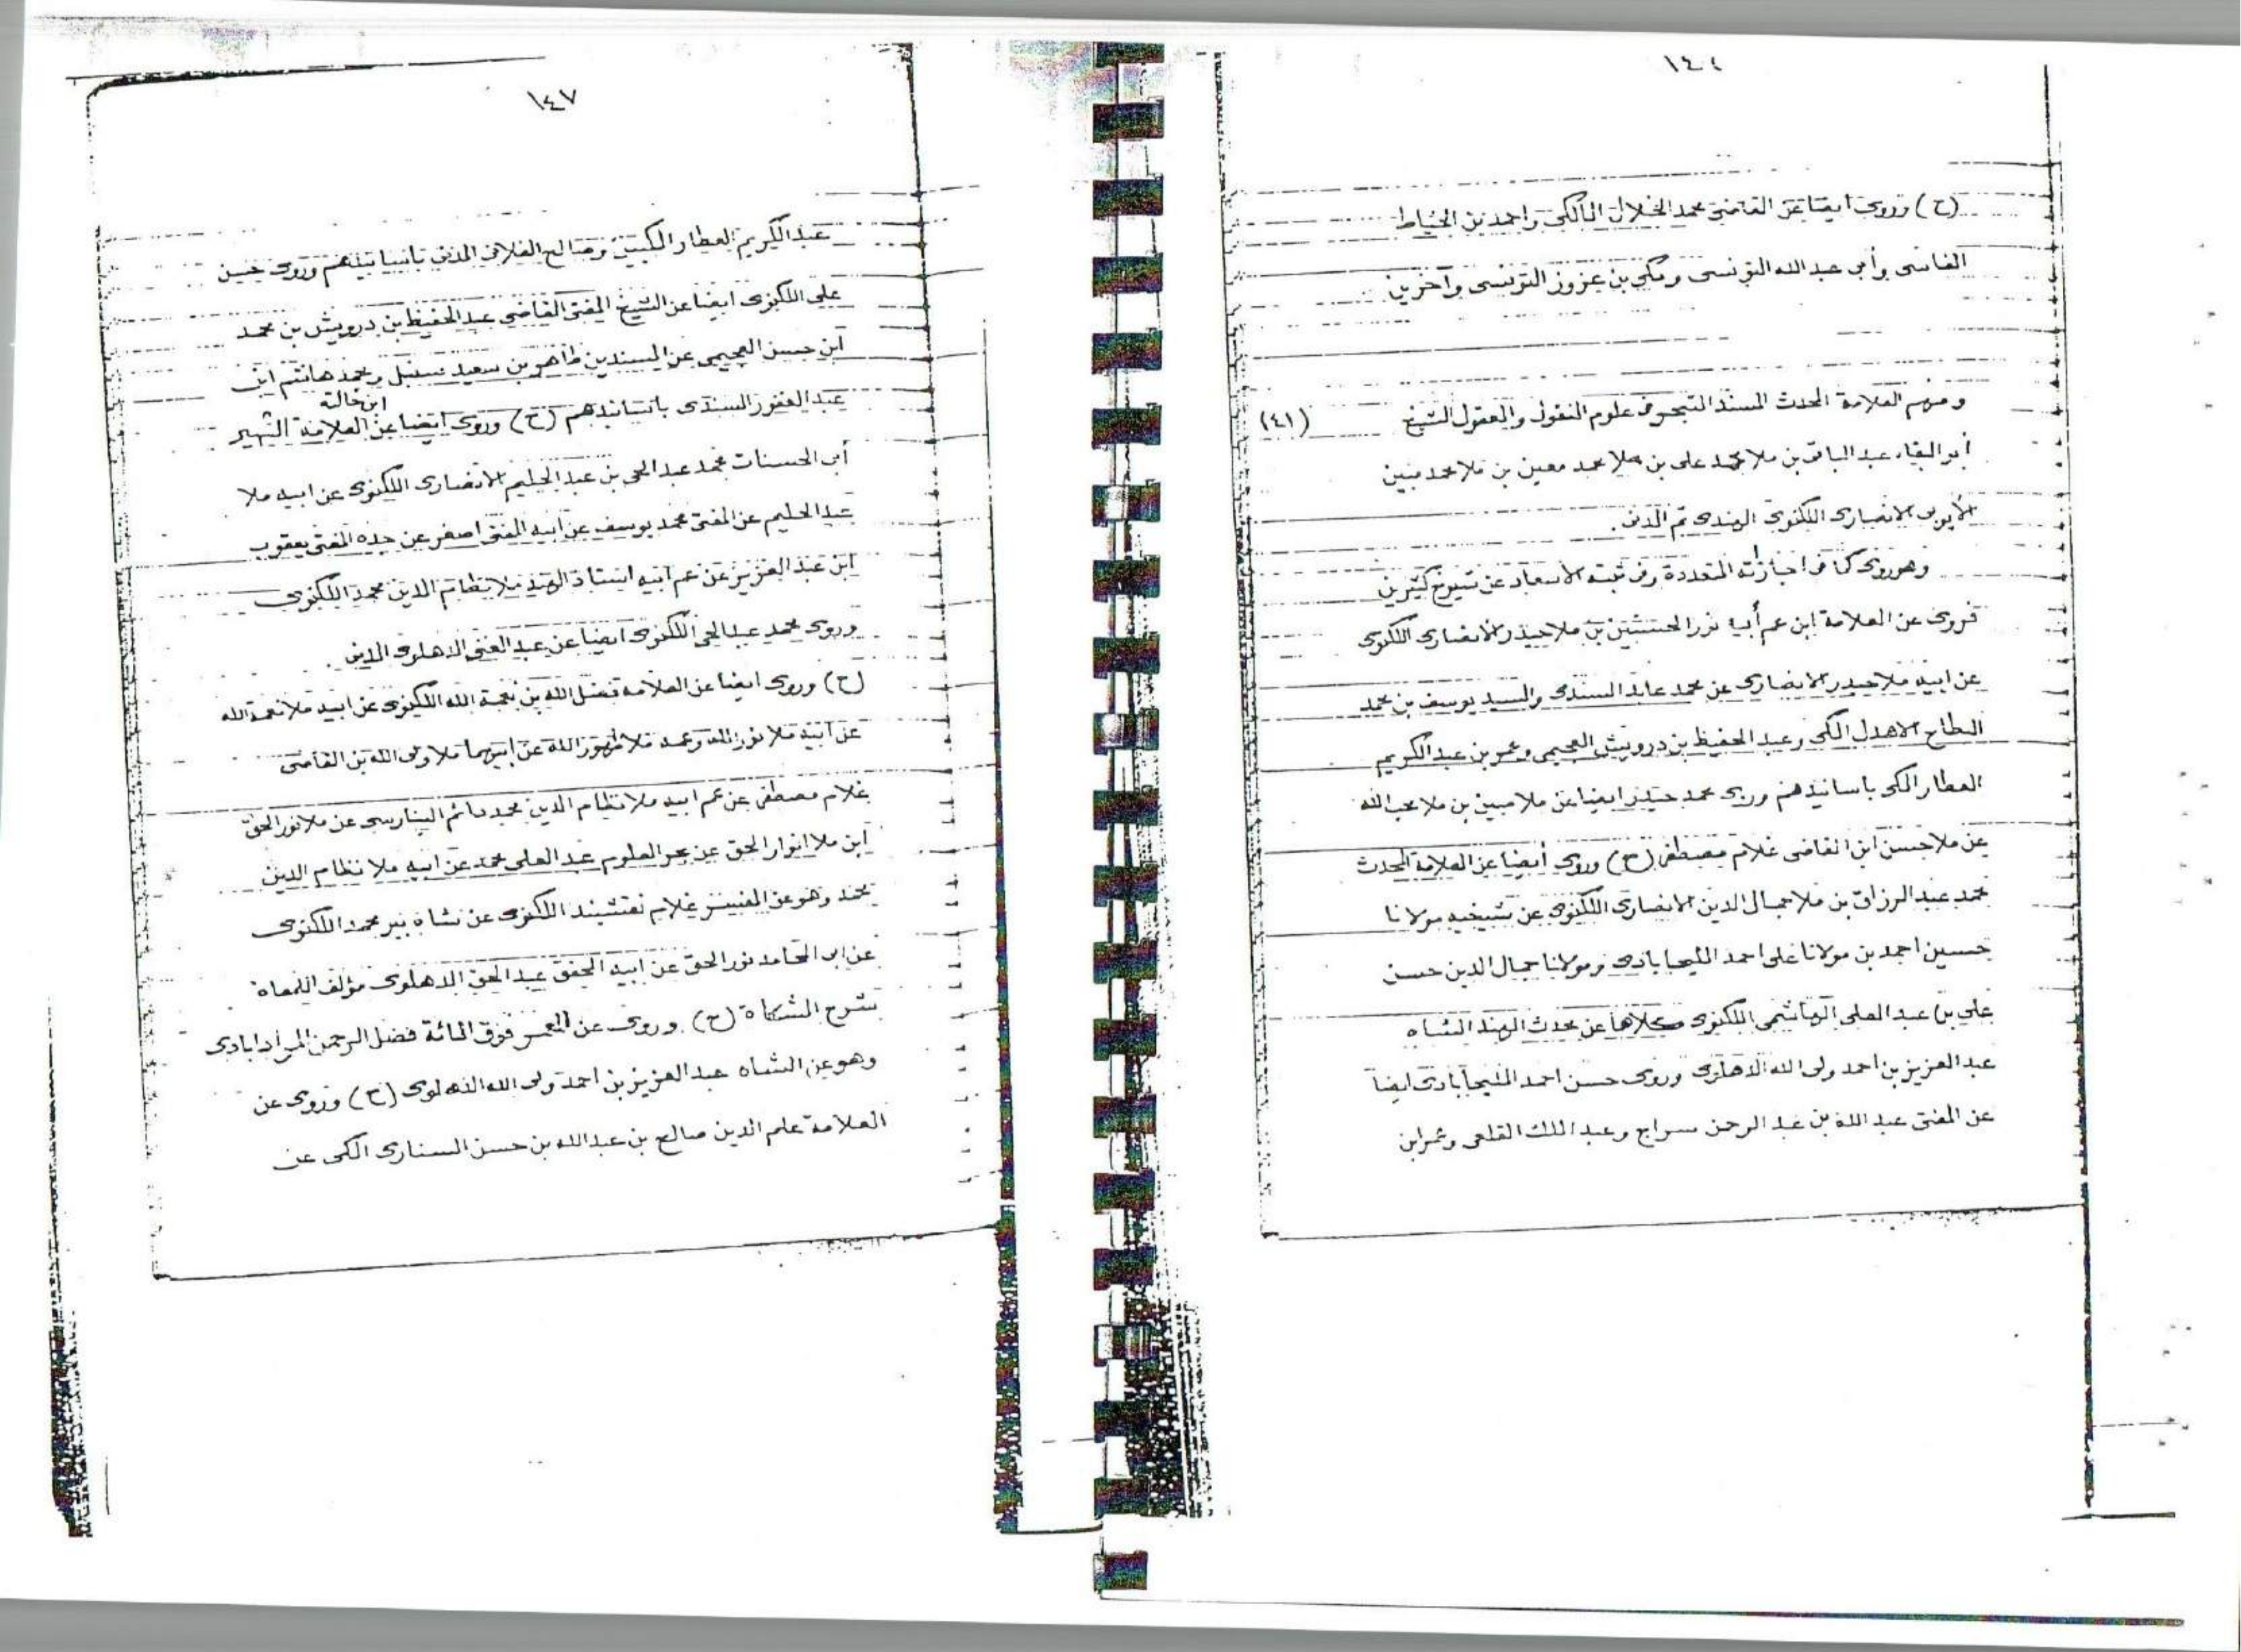 (ح) وروى ايضا عن القاضي محمد الخلال المالكي واحمد بن الخياط
الفاسى وأبى عبد الله التونسى ومكي بن عزوز التونسى وآخرين
ومنهم العلامة المحدث المسند المتبحر فى علوم المنقول والمعقول الشيخ (٤١)
أبو البقاء عبد الباقى بن ملا محمد على بن ملا محمد معين بن ملا محمد مبين
الأيوبى الانصارى اللكنوى الهندى ثم المدنى .
وهو روى كما فى اجازته المتعددة وفى ثبته الاسعاد عن شيوخ كثيرين
فروى عن العلامة ابن عم أبيه نور الحسنين بن ملا حيدر الانصارى اللكنوى
عن ابيه ملا حيدر الانصارى عن محمد عابد السندى والسيد يوسف بن محمد
البطاح الاهدل المكى وعبد الحفيظ بن درويش العجيمى وعمر بن عبد الكريم
العطار المكى باسانيدهم وروى محمد حيدر ايضا عن ملا مبين بن ملا محب الله
عن ملا حسن ابن القاضى غلام مصطفى (ح) وروى أيضا عن العلامة المحدث
محمد عبد الرزاق بن ملا جمال الدين الانصارى اللكنوى عن شيخيه مولانا
حسين احمد بن مولانا على احمد المليحابادى ومولانا جمال الدين حسن
على بن عبد العلى الهاشمى اللكنوى كلاهما عن محدث الهند الشاه
عبد العزيز بن احمد ولى الله الدهلوى وروى حسن احمد المليحآبادى ايضا
عن المفتى عبد الله بن عبد الرحمن سراج وعبد الملك القلعى وعمر ابن
١٤٧
عبد الكريم العطار المكيين وصالح الفلانى المدنى باسانيدهم وروى حسن
على اللكنوى ايضا عن الشيخ المفتى القاضي عبد الحفيظ بن درويش بن محمد
ابن حسن العجيمى عن المسندين طاهر بن سعيد سنبل ومحمد هاشم ابن
عبد الغفور السندى باسانيدهم (ح) وروى ايضا عن ابن خالته العلامة الشهير
أبى الحسنات محمد عبد الحى بن عبد الحليم الانصارى اللكنوى عن ابيه ملا
عبد الحليم عن المفتى محمد يوسف عن ابيه المفتى اصغر عن جده المفتى يعقوب
ابن عبد العزيز عن عم ابيه استاذ الهند ملا نظام الدين محمد اللكنوى
وروى محمد عبد الحي اللكنوى ايضا عن عبد الغنى الدهلوى المدنى .
(ح) وروى ايضا عن العلامة فضل الله بن نعمة الله اللكنوى عن ابيه ملا نعمة الله
عن ابيه ملا نور الله وعمه ملا ظهور الله عن ابيهما ملا ولى الله بن القاضى
غلام مصطفى عن عم ابيه ملا نظام الدين محمد دائم البنارسى عن ملا نور الحق
ابن ملا انوار الحق عن بحر العلوم عبد العلى محمد عن ابيه ملا نظام الدين
محمد وهو عن المفسر غلام نقشبند اللكنوى عن شاه بير محمد اللكنوى
عن ابى المحامد نور الحق عن ابيه المحقق عبد الحق الدهلوى مؤلف اللمعات
شرح المشكاة (ح) وروى عن المعمر فوق المائة فضل الرحمن المرادابادى
وهو عن الشاه عبد العزيز بن احمد ولى الله الدهلوى (ح) وروى عن
العلامة علم الدين صالح بن عبد الله بن حسن السنارى المكى عن